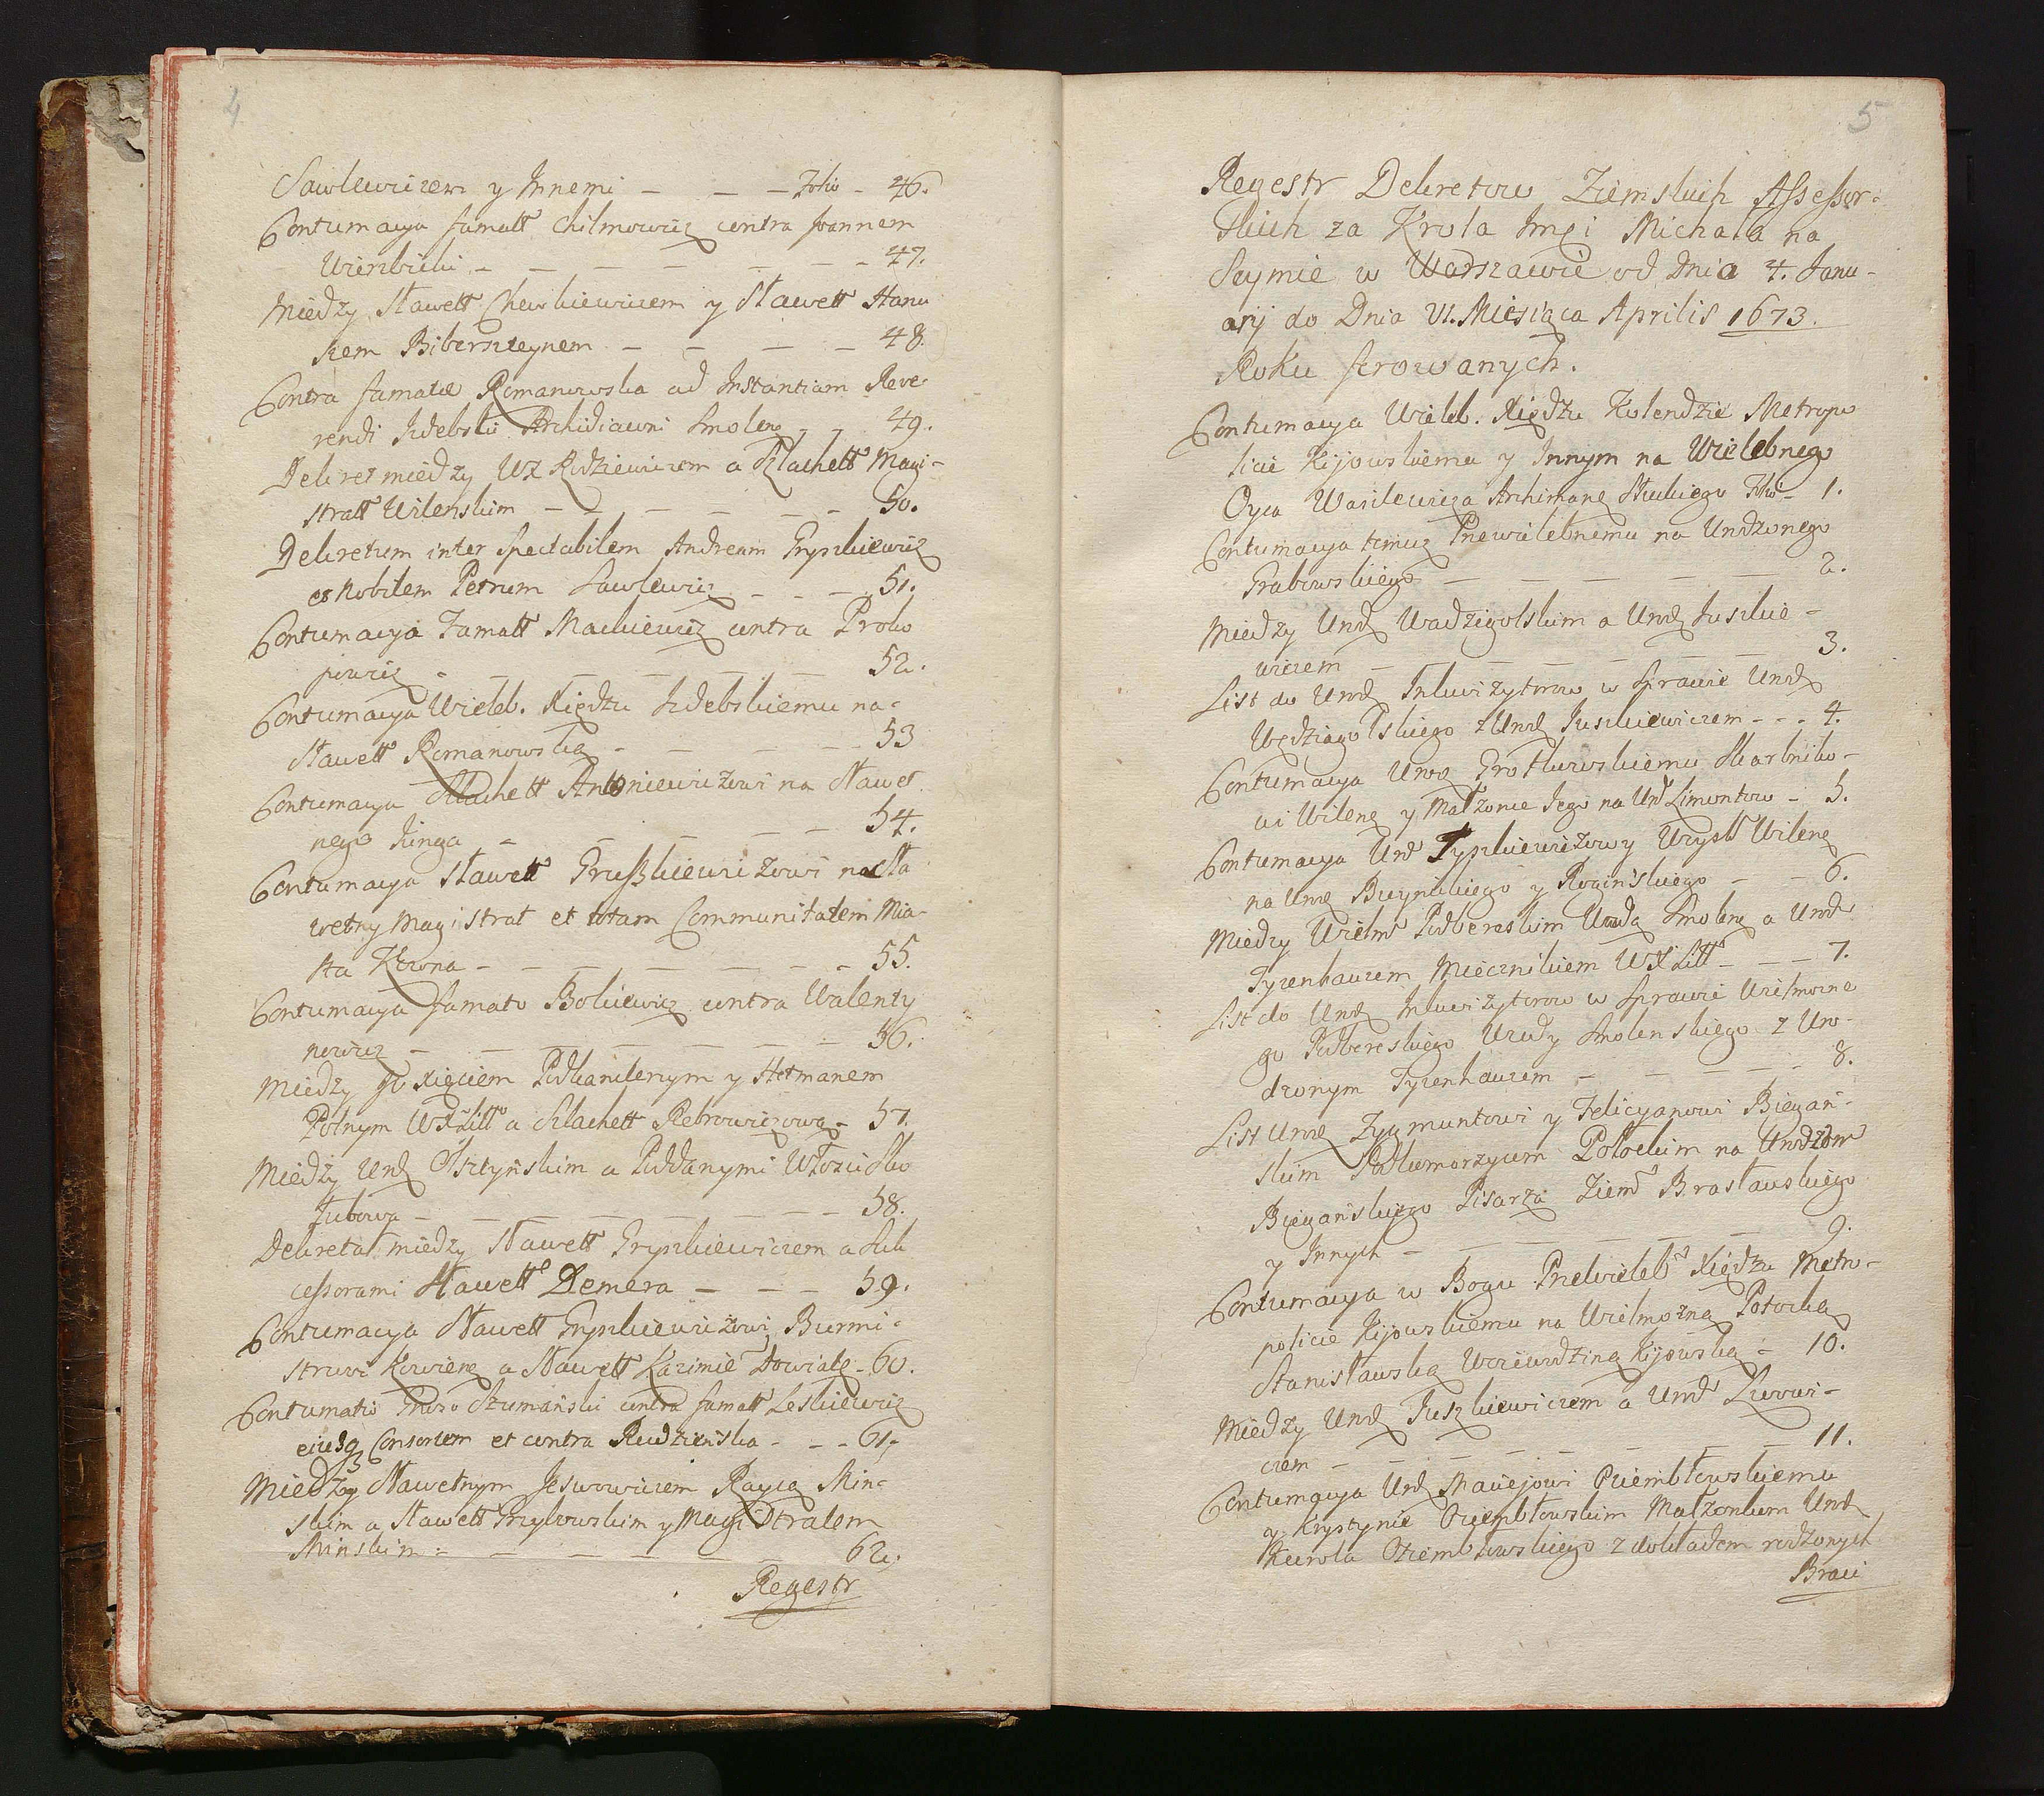 4
Sawlewiczem y Innemi — — — Folio — 46.
Contumacya famatt Chilmowicz contra Joannem
Wierzbicki — — — — — — — 47.
Między Sławett Chewkiewiczem y Sławett Hanu
szem Biberszteynem — — — — 48.
Contra famatæ Romanowska ad Instantiam Reve
rendi Izdebski Archidiaconi Smolenz — — 49.
Dekret między WX Rudziewiczem a Szlachett Magi-
stratt Wilenskim — — — — — — 50.
Decretum inter Spectabilem Andream Gryszkiewicz
et Nobilem Petrum Sawlewicz — — — 51.
Contumacya Famatt Mackiewicz contra Proko
powicz — — — — — — 52.
Contumacya Wieleb. Xiędzu Izdebskiemu na-
Sławett Romanowską — — — — — 53
Contumacya Szlachett Antoniewiczowi na Sławet
nego Kinga — — — — — 54.
Contumacya Sławett Gruszkiewiczowi na Sła
wetny Magistrat et totam Communitatem Mia-
sta Kowna — — — — — — 55.
Contumacya famato Bokiewicz contra Walenty
nowicz — — — — — — 56.
Między Jo Xięciem Podkanclerzym y Hetmanem
Polnym WXLitt a Szlachett Rebrowiczową — 57.
Między Urodz Olsztyńskim a Poddanymi Włoscisko
Jubowa — — — — — — — 58.
Dekreta między Sławett Gryszkiewiczem a Suk
cessorami Sławett Demera — — — 59.
Contumacya Sławett Gryszkiewiczowi Burmi-
strowi Kowienz a Sławett Kazimie Dowiałę — 60.
Contumatio Gnoso Szumański contra famatt Leskiewicz
eiusq Consortem et contra Rudzieńska — — — 61.
Między Sławetnym Jeswowiczem Raycą Min-
skim a Sławett Przyborskim y Magistratem
Minskim — — — — — — 62.
Regestr
5
Regestr Dekretow Ziemskich Assessor-
skich za Krola Jmci Michała na
Seymie w Warszawie od Dnia 4. Janu-
arij do Dnia VI. Miesiąca Aprilis 1673.
Roku ferowanych.
Contumacya Wieleb. Xiędzu Kolendzie Metropo
licie Kijowskiemu y Innym na Wielebnego
Oyca Wasilewicza Archimanz Słuckiego Folio — 1.
Contumacya temuz Przewielebnemu na Urodzonego
Grabowskiego — — — — — — 2.
Między Urodz Wadzigolskim a Urodz Juszkie-
wiczem — — — — — — — 3.
List do Urodz Inkwizytorow w Sprawie Urodz
Wędziagolskiego z Urodz Juszkiewiczem — — — 4.
Contumacya Urodz Grothuwskiemu Skarbniko-
wi Wilenz y Małzonce Jego na Urd Limontow — 5.
Contumacya Urod Tyszkiewiczowy Woysk Wilenz
na Urodz Buynickiego y Roginskiego — — 6.
Między Wielm Podbereskim Wwdą Smolenz a Urodz
Tyzenhauzem Miecznikiem WXLitt — — — 7.
List do Urodz Inkwizytorow w Sprawie Wielmozne
go Podbereskiego Wwdy Smolenskiego z Uro-
dzonym Tyzenhauzem — — — — — — 8.
List Urodz Zygmuntowi y Felicyanowi Biegań-
skim Podkomorzycom Połockim na Urodzon
Biegańskiego Pisarza Ziem Brasławskiego
y Innych — — — — — — — 9.
Contumacya w Bogu Przewieleb Xiędzu Metro-
policie Kijowskiemu na Wielmozną Potocką
Stanisławską Woiewodziną Kijowską — 10.
Między Urodz Juszkiewiczem a Urodz Lwowi-
czem — — — — — — — 11.
Contumacya Urodz Maciejowi Oziembłowskiemu
y Krystynie Oziembłowskim Małzonkom Urodz
Karola Oziembłowskiego z dokładem rodzonych
Braci